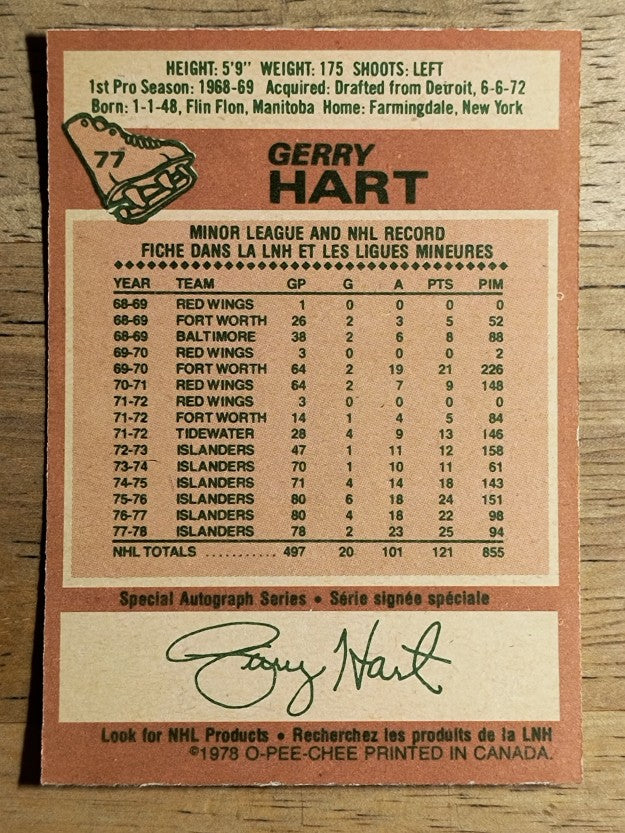 HEIGHT: 5'9" WEIGHT: 175 SHOOTS: LEFT
1st Pro Season: 1968-69 Acquired: Drafted from Detroit, 6-6-72
Born: 1-1-48, Flin Flon, Manitoba Home: Farmingdale, New York
77
GERRY
HART
MINOR LEAGUE AND NHL RECORD
FICHE DANS LA LNH ET LES LIGUES MINEURES
YEAR TEAM GP G A PTS PIM
68-69 RED WINGS 1 0 0 0 0
68-69 FORT WORTH 26 2 3 5 52
68-69 BALTIMORE 38 2 6 8 88
69-70 RED WINGS 3 0 0 0 2
69-70 FORT WORTH 64 2 19 21 226
70-71 RED WINGS 64 2 7 9 148
71-72 RED WINGS 3 0 0 0 0
71-72 FORT WORTH 14 1 4 5 84
71-72 TIDEWATER 28 4 9 13 146
72-73 ISLANDERS 47 1 11 12 158
73-74 ISLANDERS 70 1 10 11 61
74-75 ISLANDERS 71 4 14 18 143
75-76 ISLANDERS 80 6 18 24 151
76-77 ISLANDERS 80 4 18 22 98
77-78 ISLANDERS 78 2 23 25 94
NHL TOTALS ........... 497 20 101 121 855
Special Autograph Series • Série signée spéciale
Gary Hart
Look for NHL Products • Recherchez les produits de la LNH
©1978 O-PEE-CHEE PRINTED IN CANADA.